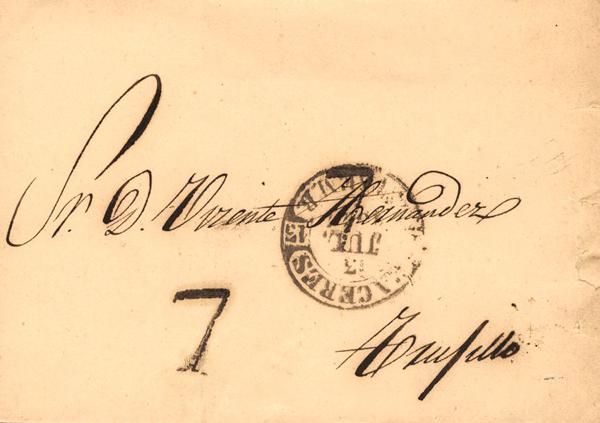 Sr. D. Vizente Hernandez
Trujillo
7
CACERES
13
JUL.